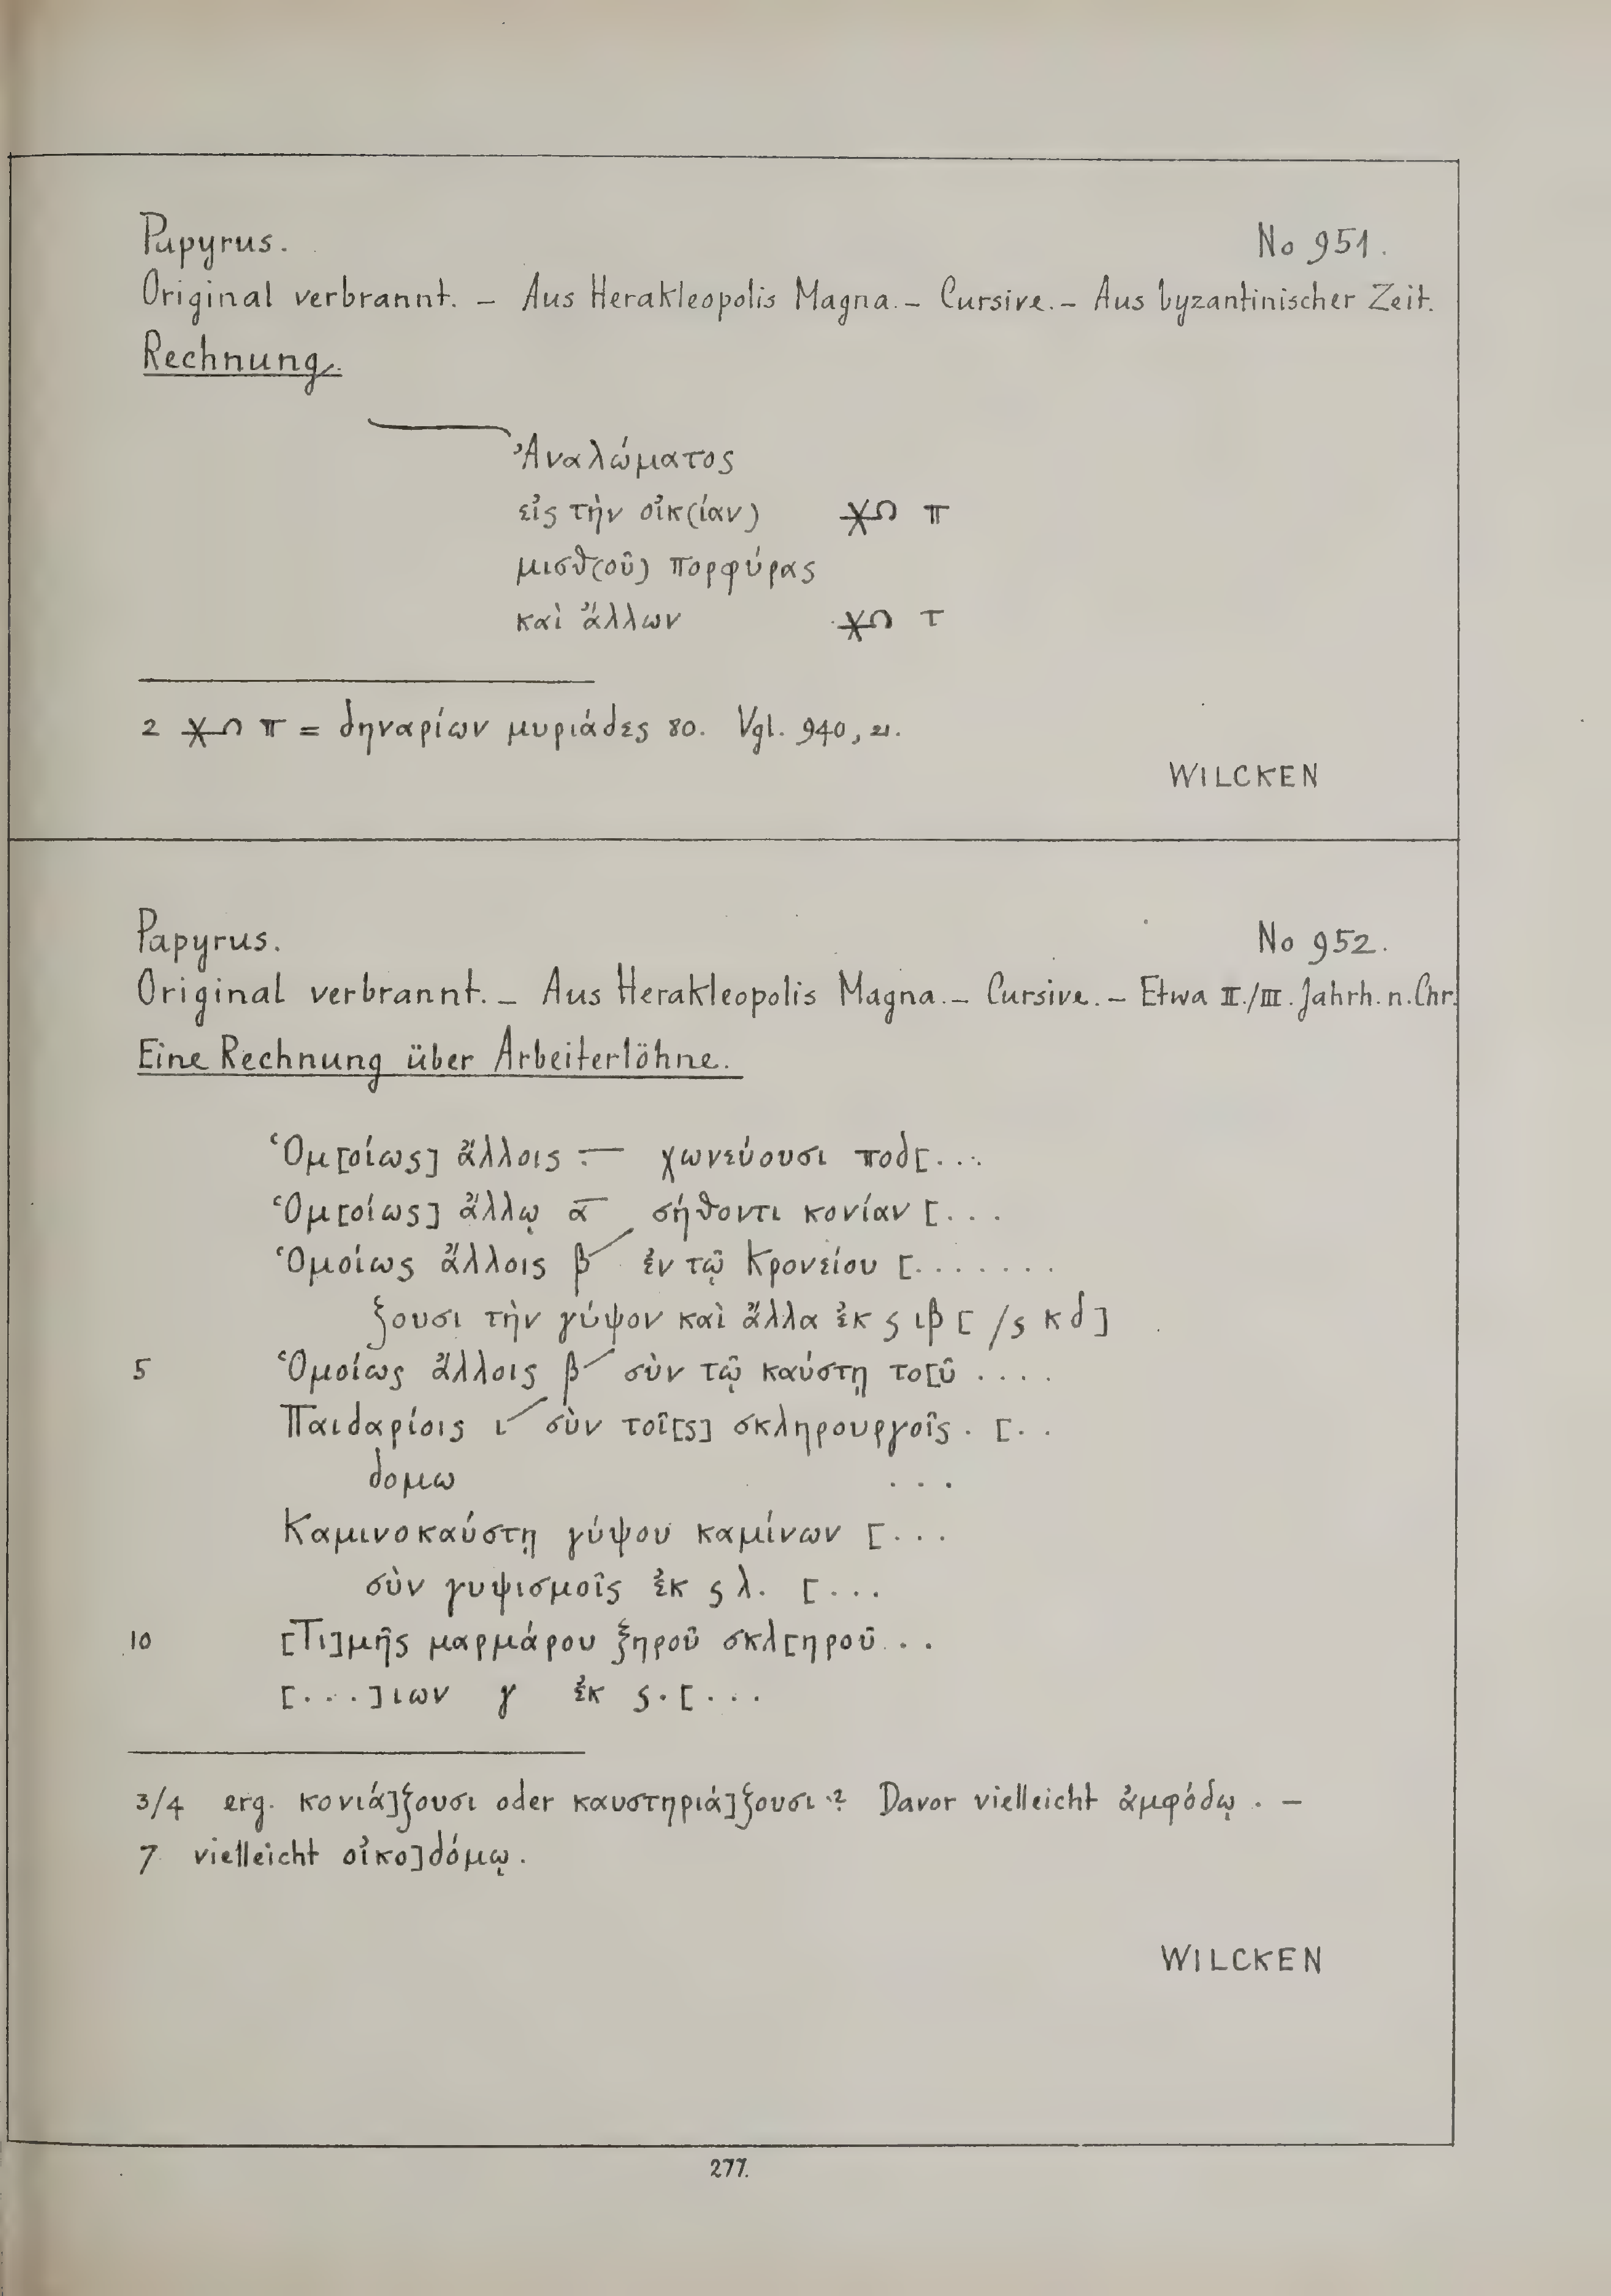 Papyrus. No 951.
Original verbrannt. – Aus Herakleopolis Magna. – Cursive. – Aus byzantinischer Zeit.
Rechnung.
Ἀναλώματος
εἰς τὴν οἰκ(ίαν) π
μισθ(οῦ) πορφύρας
καὶ ἄλλων τ
2 π = δηναρίων μυριάδες 80. Vgl. 940, 21.
WILCKEN
Papyrus. No 952.
Original verbrannt. – Aus Herakleopolis Magna. – Cursive. – Etwa II./III. Jahrh. n. Chr.
Eine Rechnung über Arbeiterlöhne.
Ὁμ[οίως] ἄλλοις . χωνεύουσι ποδ[...
Ὁμ[οίως] ἄλλῳ α σήθοντι κονίαν [...
Ὁμοίως ἄλλοις β ἐν τῷ Κρονείου [.......
ζουσι τὴν γύψον καὶ ἄλλα ἐκ ϛ ιβ [ /ϛ κδ]
5 Ὁμοίως ἄλλοις β σὺν τῷ καύστῃ το[ῦ ....
Παιδαρίοις ι σὺν τοῖ[ς] σκληρουργοῖς . [..
δομω ...
Καμινοκαύστῃ γύψου καμίνων [...
σὺν γυψισμοῖς ἐκ ϛ λ. [...
10 [Τι]μῆς μαρμάρου ξηροῦ σκλ[ηροῦ ..
[....]ιων γ ἐκ ϛ . [...
3/4 erg. κονιά]ζουσι oder καυστηριά]ζουσι? Davor vielleicht ἀμφόδῳ . –
7 vielleicht οἰκο]δόμῳ.
WILCKEN
277.